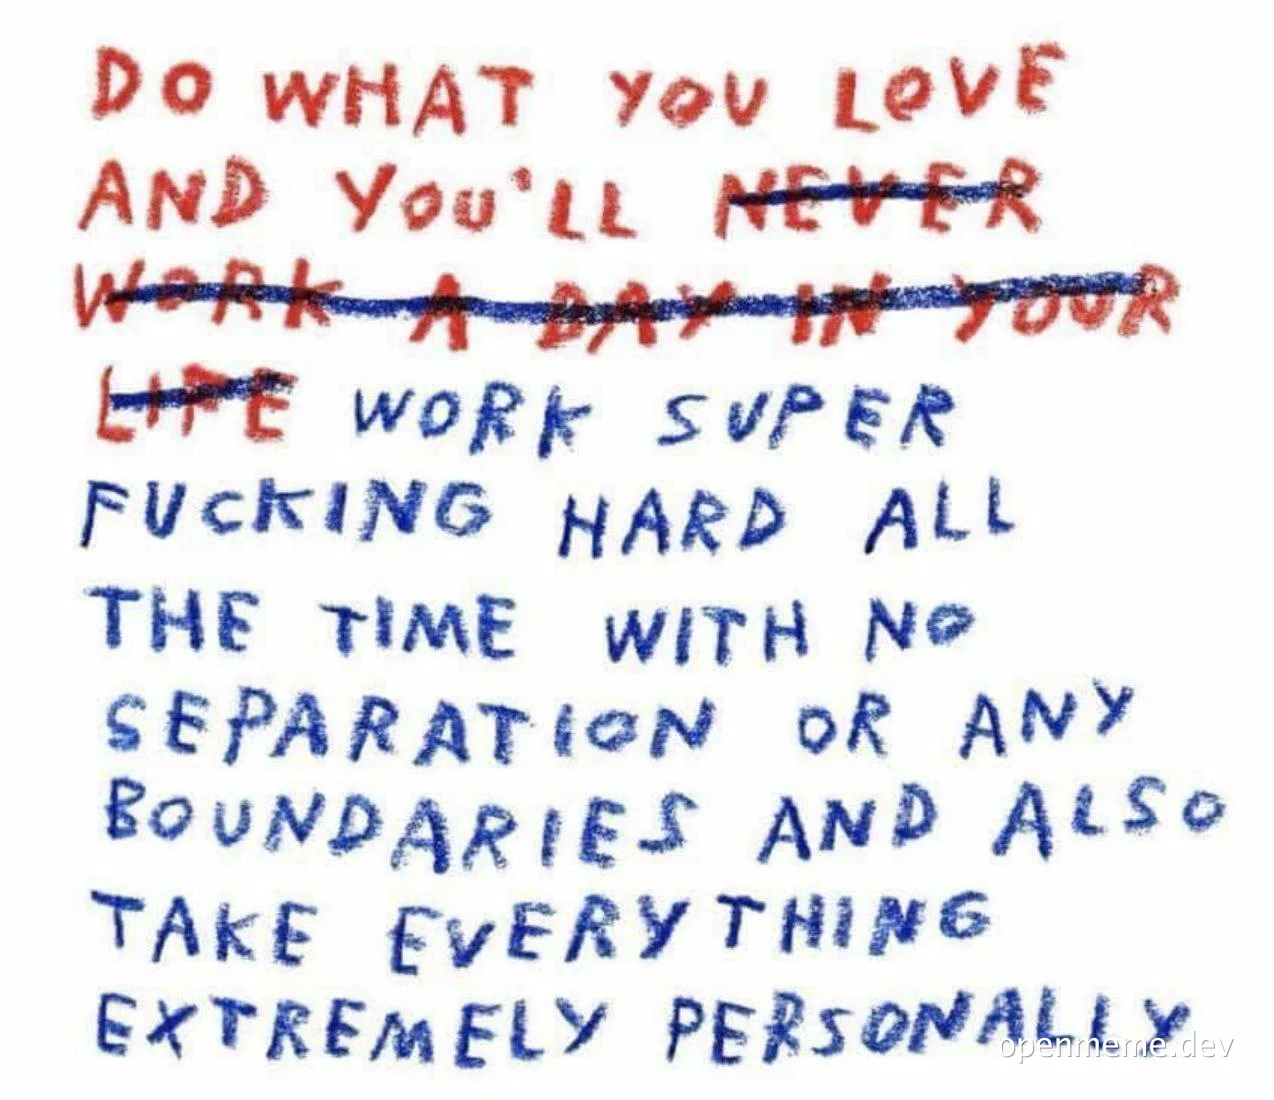 DO WHAT YOU LOVE
AND YOU'LL NEVER
WORK A DAY IN YOUR
LIFE WORK SUPER
FUCKING HARD ALL
THE TIME WITH NO
SEPARATION OR ANY
BOUNDARIES AND ALSO
TAKE EVERYTHING
EXTREMELY PERSONALLY
openmeme.dev